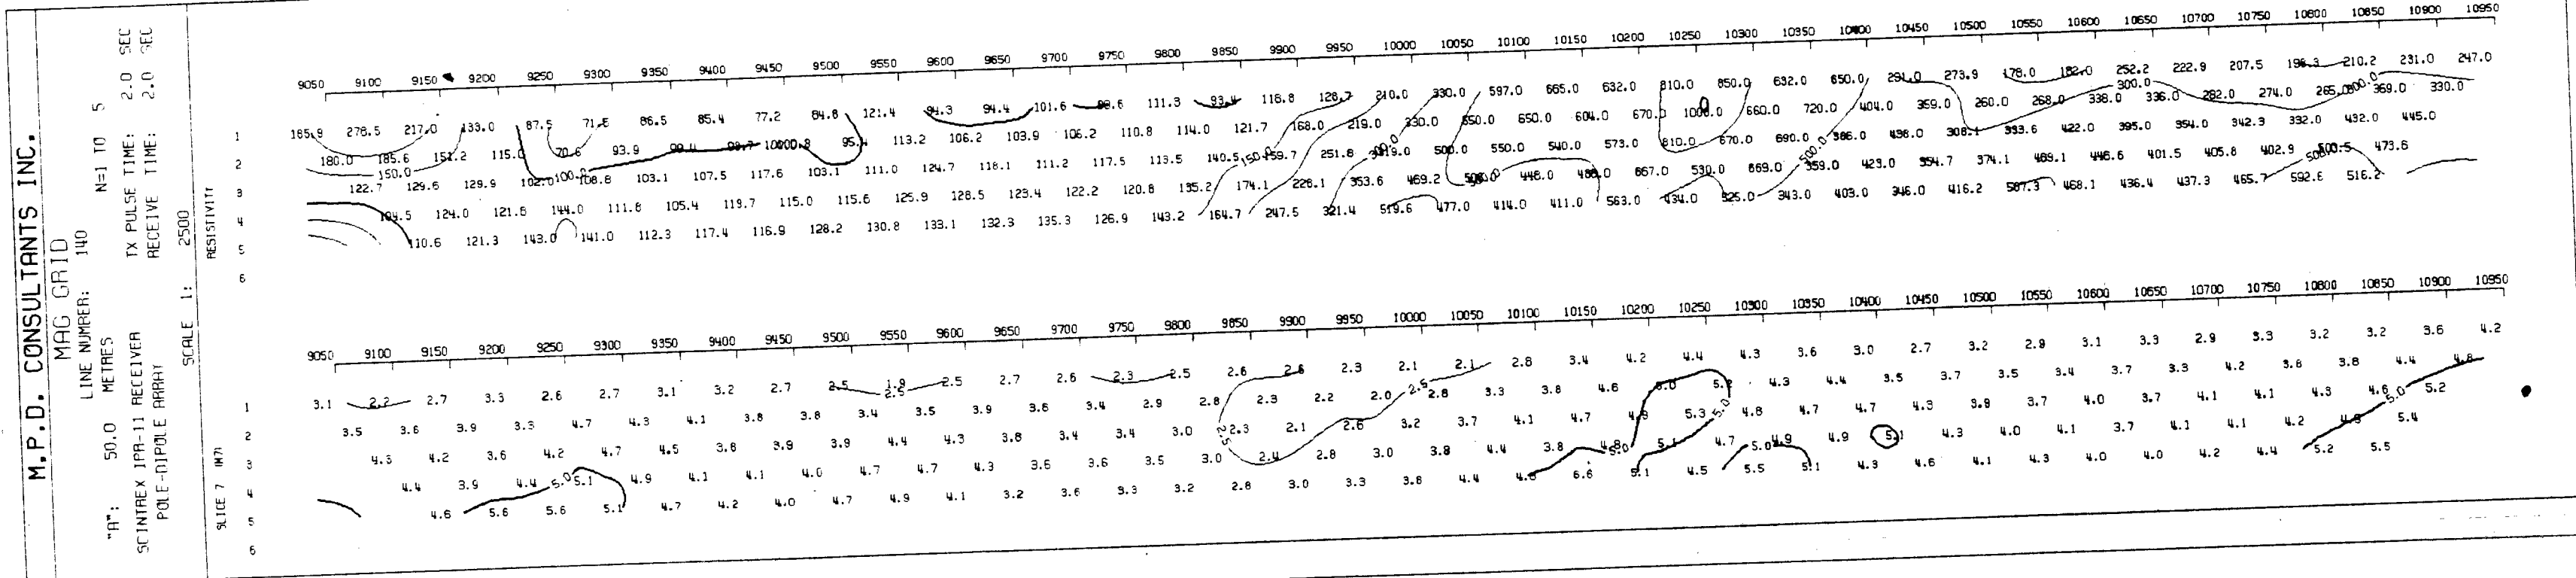 M.P.D. CONSULTANTS INC.
MAG GRID
LINE NUMBER: 140
"A": 50.0 METRES N=1 TO 5
SCINTREX IPR-11 RECEIVER TX PULSE TIME: 2.0 SEC
POLE-DIPOLE ARRAY RECEIVE TIME: 2.0 SEC
SCALE 1: 2500
RESISTIVITY
9050 9100 9150 9200 9250 9300 9350 9400 9450 9500 9550 9600 9650 9700 9750 9800 9850 9900 9950 10000 10050 10100 10150 10200 10250 10300 10350 10400 10450 10500 10550 10600 10650 10700 10750 10800 10850 10900 10950
1 185.9 278.5 217.0 133.0 87.5 86.5 85.4 77.2 84.8 121.4 94.3 94.4 101.6 111.3 93.4 118.8 128.7 210.0 330.0 597.0 665.0 632.0 810.0 850.0 632.0 650.0 291.0 273.9 178.0 182.0 252.2 222.9 207.5 210.2 231.0 247.0
2 180.0 185.6 151.2 115.0 70.6 93.9 95.4 113.2 106.2 103.9 106.2 110.8 114.0 121.7 168.0 219.0 330.0 650.0 650.0 604.0 670.0 660.0 720.0 404.0 359.0 260.0 268.0 338.0 336.0 282.0 274.0 369.0 330.0
3 122.7 129.6 129.9 103.1 107.5 117.6 103.1 111.0 124.7 118.1 111.2 117.5 113.5 140.5 251.8 500.0 550.0 540.0 573.0 810.0 670.0 690.0 386.0 438.0 308.1 333.6 422.0 395.0 354.0 342.3 332.0 432.0 445.0
4 104.5 124.0 121.6 144.0 111.8 105.4 119.7 115.0 115.6 125.9 128.5 123.4 122.2 120.8 135.2 174.1 228.1 353.6 469.2 448.0 488.0 667.0 530.0 669.0 359.0 423.0 354.7 374.1 469.1 446.6 401.5 405.8 402.9 473.6
5 110.6 121.3 143.0 141.0 112.3 117.4 116.9 128.2 130.8 133.1 132.3 135.3 126.9 143.2 164.7 247.5 321.4 519.6 477.0 414.0 411.0 563.0 434.0 525.0 343.0 403.0 346.0 416.2 507.3 468.1 436.4 437.3 465.7 592.6 516.2
6
150.0 100.0 150.0 300.0 500.0 300.0 300.0
SLICE 7 (M7)
9050 9100 9150 9200 9250 9300 9350 9400 9450 9500 9550 9600 9650 9700 9750 9800 9850 9900 9950 10000 10050 10100 10150 10200 10250 10300 10350 10400 10450 10500 10550 10600 10650 10700 10750 10800 10850 10900 10950
1 3.1 2.2 2.7 3.3 2.6 2.7 3.1 3.2 2.7 2.5 1.9 2.5 2.7 2.6 2.3 2.5 2.6 2.6 2.3 2.1 2.1 2.8 3.4 4.2 4.4 4.3 3.6 3.0 2.7 3.2 2.9 3.1 3.3 2.9 3.3 3.2 3.2 3.6 4.2
2 3.5 3.6 3.9 3.3 4.7 4.3 4.1 3.8 3.8 3.4 3.5 3.9 3.6 3.4 2.9 2.8 2.3 2.2 2.0 2.8 3.3 3.8 4.6 5.0 5.2 4.3 4.4 3.5 3.7 3.5 3.4 3.7 3.3 4.2 3.8 3.8 4.4 4.8
3 4.3 4.2 3.6 4.2 4.7 4.5 3.8 3.9 3.9 4.4 4.3 3.8 3.4 3.4 3.0 2.3 2.1 2.6 3.2 3.7 4.1 4.7 4.9 5.3 4.8 4.7 4.7 4.3 3.9 3.7 4.0 3.7 4.1 4.1 4.3 4.6 5.2
4 4.4 3.9 4.4 5.1 4.9 4.1 4.1 4.0 4.7 4.7 4.3 3.6 3.6 3.5 3.0 2.4 2.8 3.0 3.8 4.4 3.8 4.8 5.1 4.7 4.9 4.9 5.1 4.3 4.0 4.1 3.7 4.1 4.1 4.2 4.9 5.4
5 4.6 5.6 5.6 5.1 4.7 4.2 4.0 4.7 4.9 4.1 3.2 3.6 3.3 3.2 2.8 3.0 3.3 3.8 4.4 4.8 6.6 5.1 4.5 5.5 5.1 4.3 4.6 4.1 4.3 4.0 4.0 4.2 4.4 5.2 5.5
6
2.5 5.0 2.5 2.5 5.0 5.0 5.0 5.0